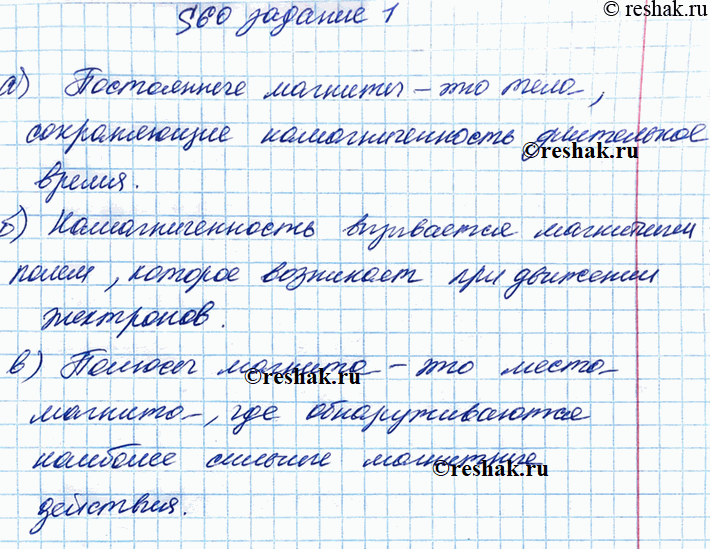 © reshak.ru
§60 задание 1
а) Постоянные магниты – это тела,
сохраняющие намагниченность длительное
©reshak.ru
время.
б) Намагниченность вызывается магнитным
полем, которое возникает при движении
электронов.
в) Полюсы магнита – это места
©reshak.ru
магнита, где обнаруживаются
наиболее сильные магнитные
©reshak.ru
действия.